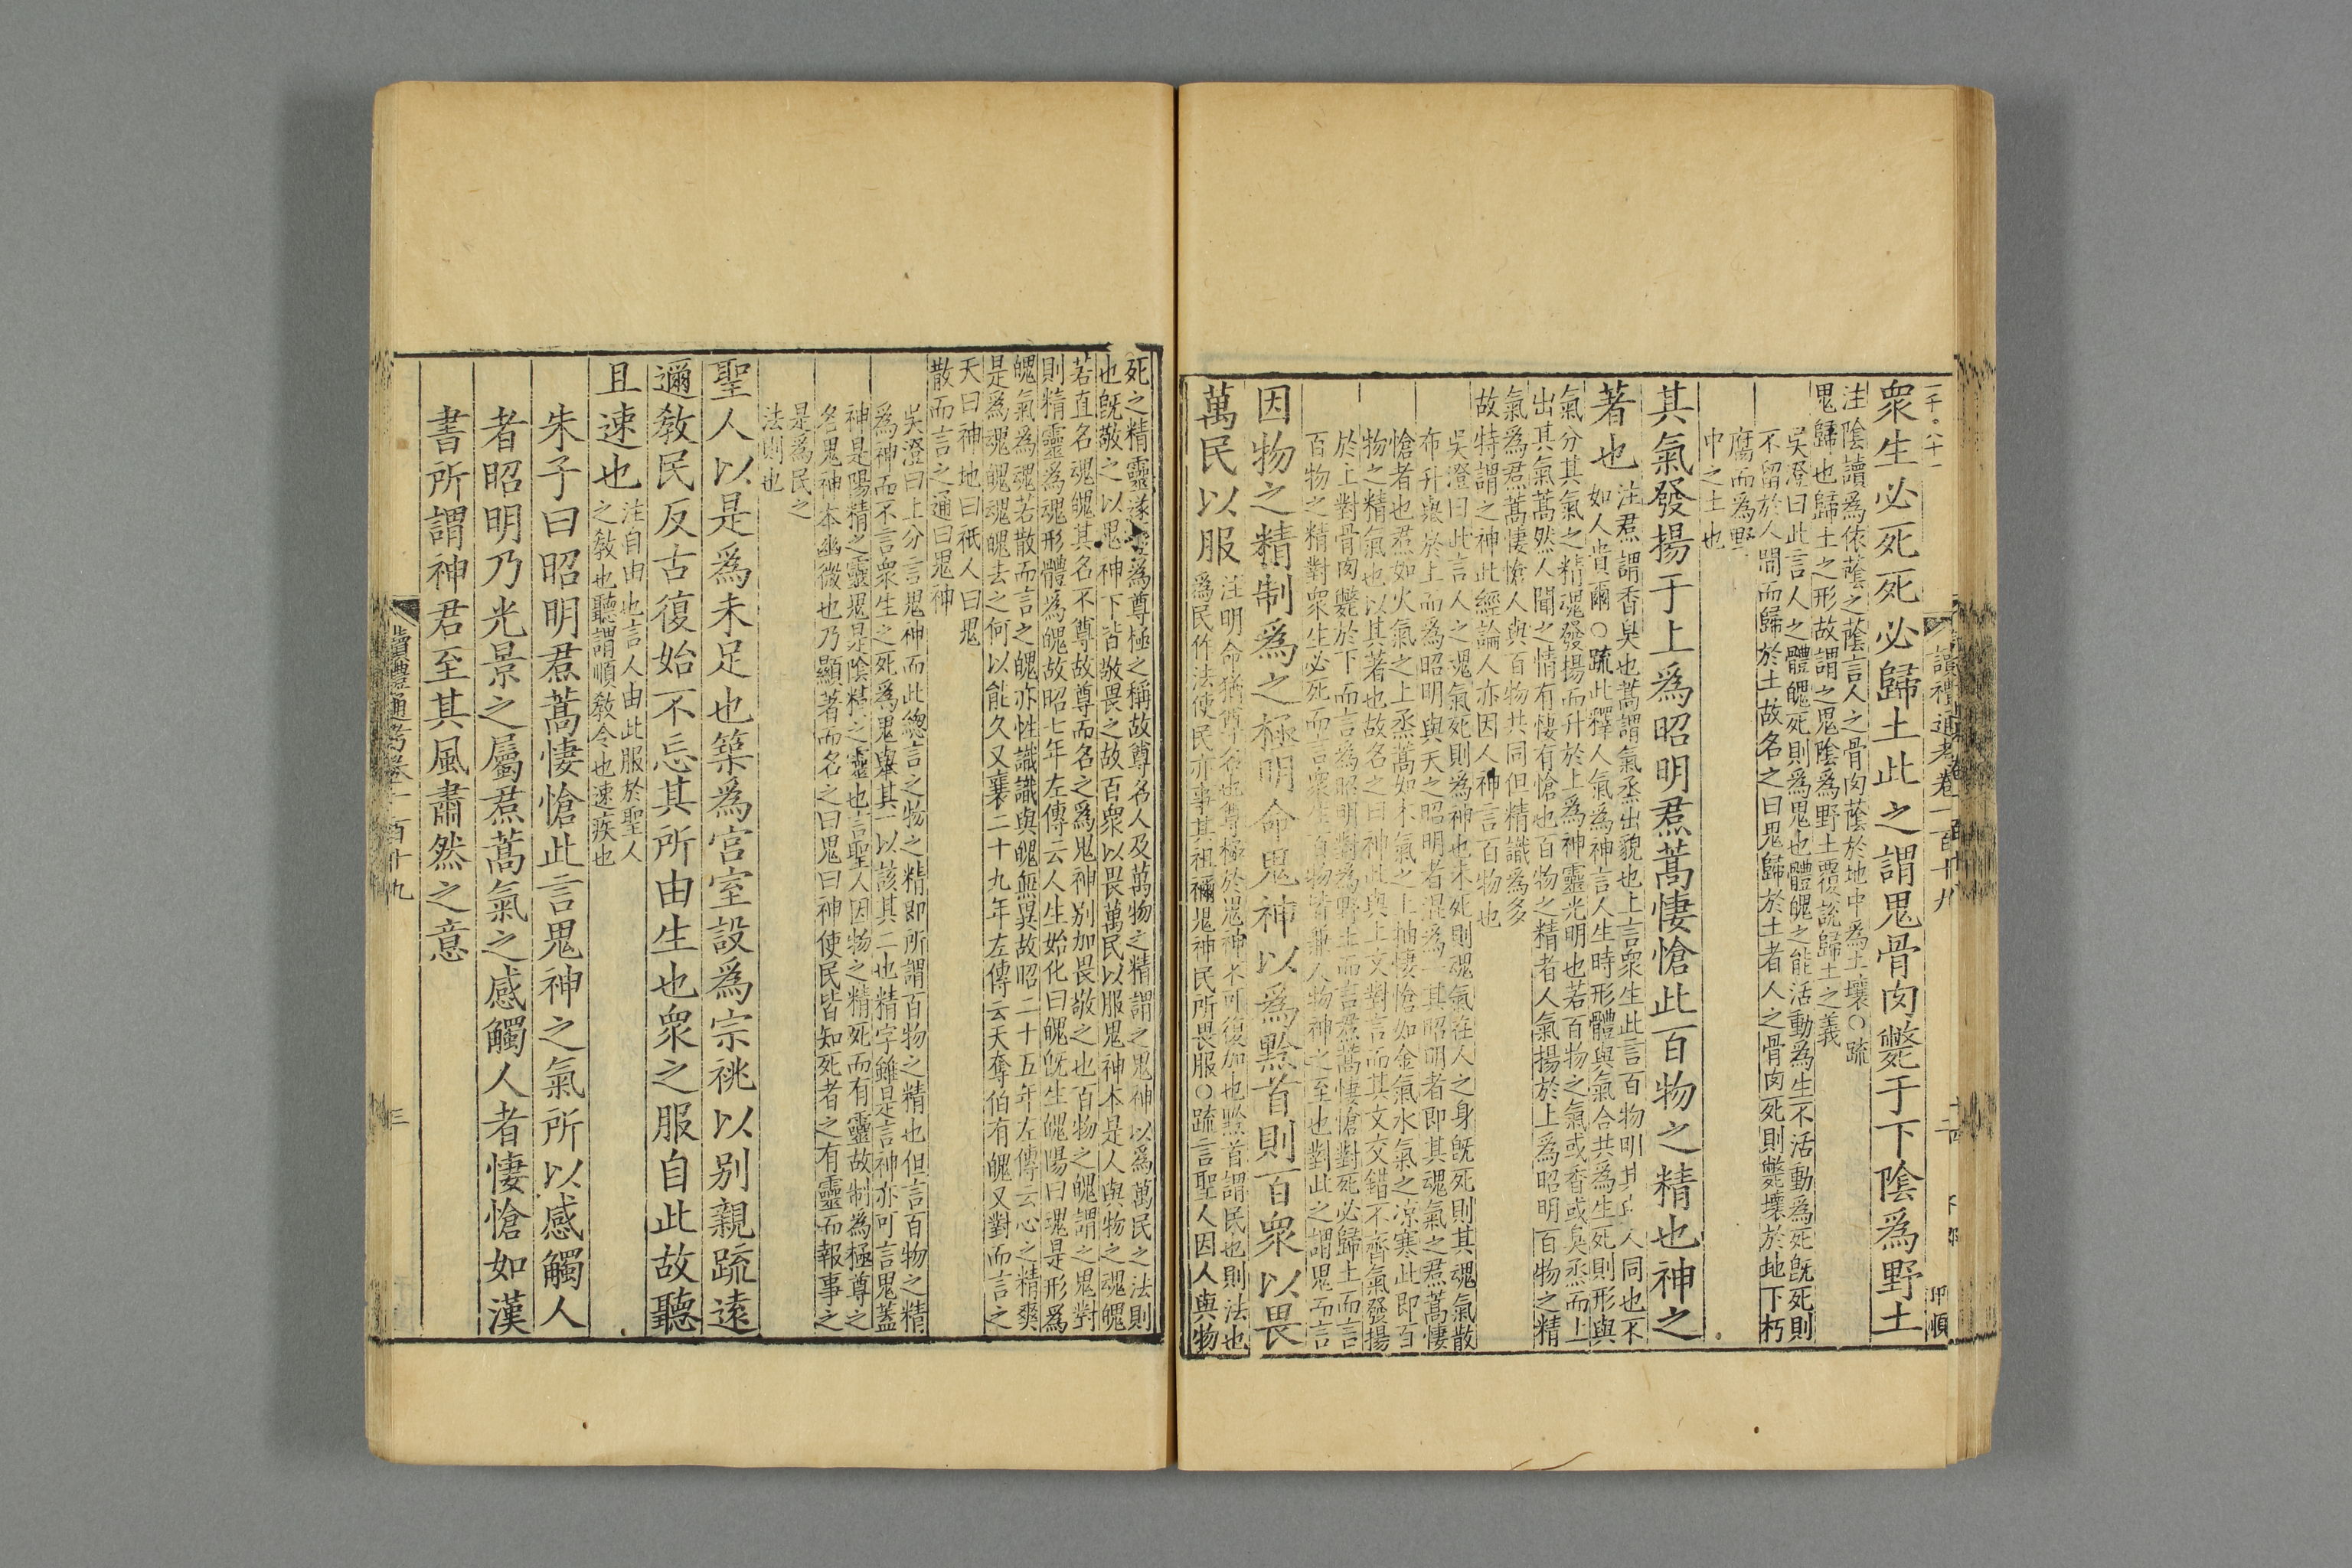 衆生必死死必歸土此之謂鬼骨肉斃于下陰爲野土
注陰讀爲依蔭之蔭言人之骨肉蔭於地中爲土壤○疏
鬼歸也歸土之形故謂之鬼陰爲野土覆說歸土之義
吳澄曰此言人之體魄死則爲鬼也體魄之能活動爲生不活動爲死旣死則
不留於人間而歸於土故名之曰鬼歸於土者人之骨肉死則斃壞於地下朽
腐而爲野
中之土也
其氣發揚于上爲昭明焄蒿悽愴此百物之精也神之
著也
注焄謂香臭也蒿謂氣烝出貌也上言衆生此言百物明其與人同也不
如人貴爾○疏此釋人氣爲神言人生時形體與氣合共爲生死則形與
氣分其氣之精魂發揚而升於上爲神靈光明也若百物之氣或香或臭烝而上
出其氣蒿然人聞之情有悽有愴也百物之精者人氣揚於上爲昭明百物之精
氣爲焄蒿悽愴人與百物共同但精識爲多
故特謂之神此經論人亦因人神言百物也
吳澄曰此言人之魂氣死則爲神也未死則魂氣在人之身旣死則其魂氣散
布升騰於上而爲昭明與天之昭明者混爲一其昭明者即其魂氣之焄蒿悽
愴者也焄如火氣之上烝蒿如木氣之上抽悽愴如金氣水氣之凉寒此即百
物之精氣也以其著也故名之曰神此與上文對言而其文交錯不齊氣發揚
於上對骨肉斃於下而言爲昭明對爲野土而言焄蒿悽愴對死必歸土而言
百物之精對衆生必死而言衆生百物皆兼人物神之至也對此之謂鬼而言
因物之精制爲之極明命鬼神以爲黔首則百衆以畏
萬民以服
注明命猶尊名也尊極於鬼神不可復加也黔首謂民也則法也
爲民作法使民亦事其祖禰鬼神民所畏服○疏言聖人因人與物
死之精靈遂造爲尊極之稱故尊名人及萬物之精謂之鬼神以爲萬民之法則
也旣敬之以鬼神下皆敬畏之故百衆以畏萬民以服鬼神本是人與物之魂魄
若直名魂魄其名不尊故尊而名之爲鬼神别加畏敬之也百物之魄謂之鬼對
則精靈爲魂形體爲魄故昭七年左傳云人生始化曰魄旣生魄陽曰魂是形爲
魄氣爲魂若散而言之魄亦性識識與魄無異故昭二十五年左傳云心之精爽
是爲魂魄魂魄去之何以能久又襄二十九年左傳云天奪伯有魄又對而言之
天曰神地曰祇人曰鬼
散而言之通曰鬼神
吳澄曰上分言鬼神而此總言之物之精即所謂百物之精也但言百物之精
爲神而不言衆生之死爲鬼舉其一以該其二也精字雖是言神亦可言鬼蓋
神是陽精之靈鬼是陰精之靈也言聖人因物之精死而有靈故制爲極尊之
名鬼神本幽微也乃顯著而名之曰鬼曰神使民皆知死者之有靈而報事之
是爲民之
法則也
聖人以是爲未足也築爲宮室設爲宗祧以别親疏遠
邇敎民反古復始不忘其所由生也衆之服自此故聽
且速也
注自由也言人由此服於聖人
之敎也聽謂順敎令也速疾也
朱子曰昭明焄蒿悽愴此言鬼神之氣所以感觸人
者昭明乃光景之屬焄蒿氣之感觸人者悽愴如漢
書所謂神君至其風肅然之意
讀禮通考卷一百十九
三